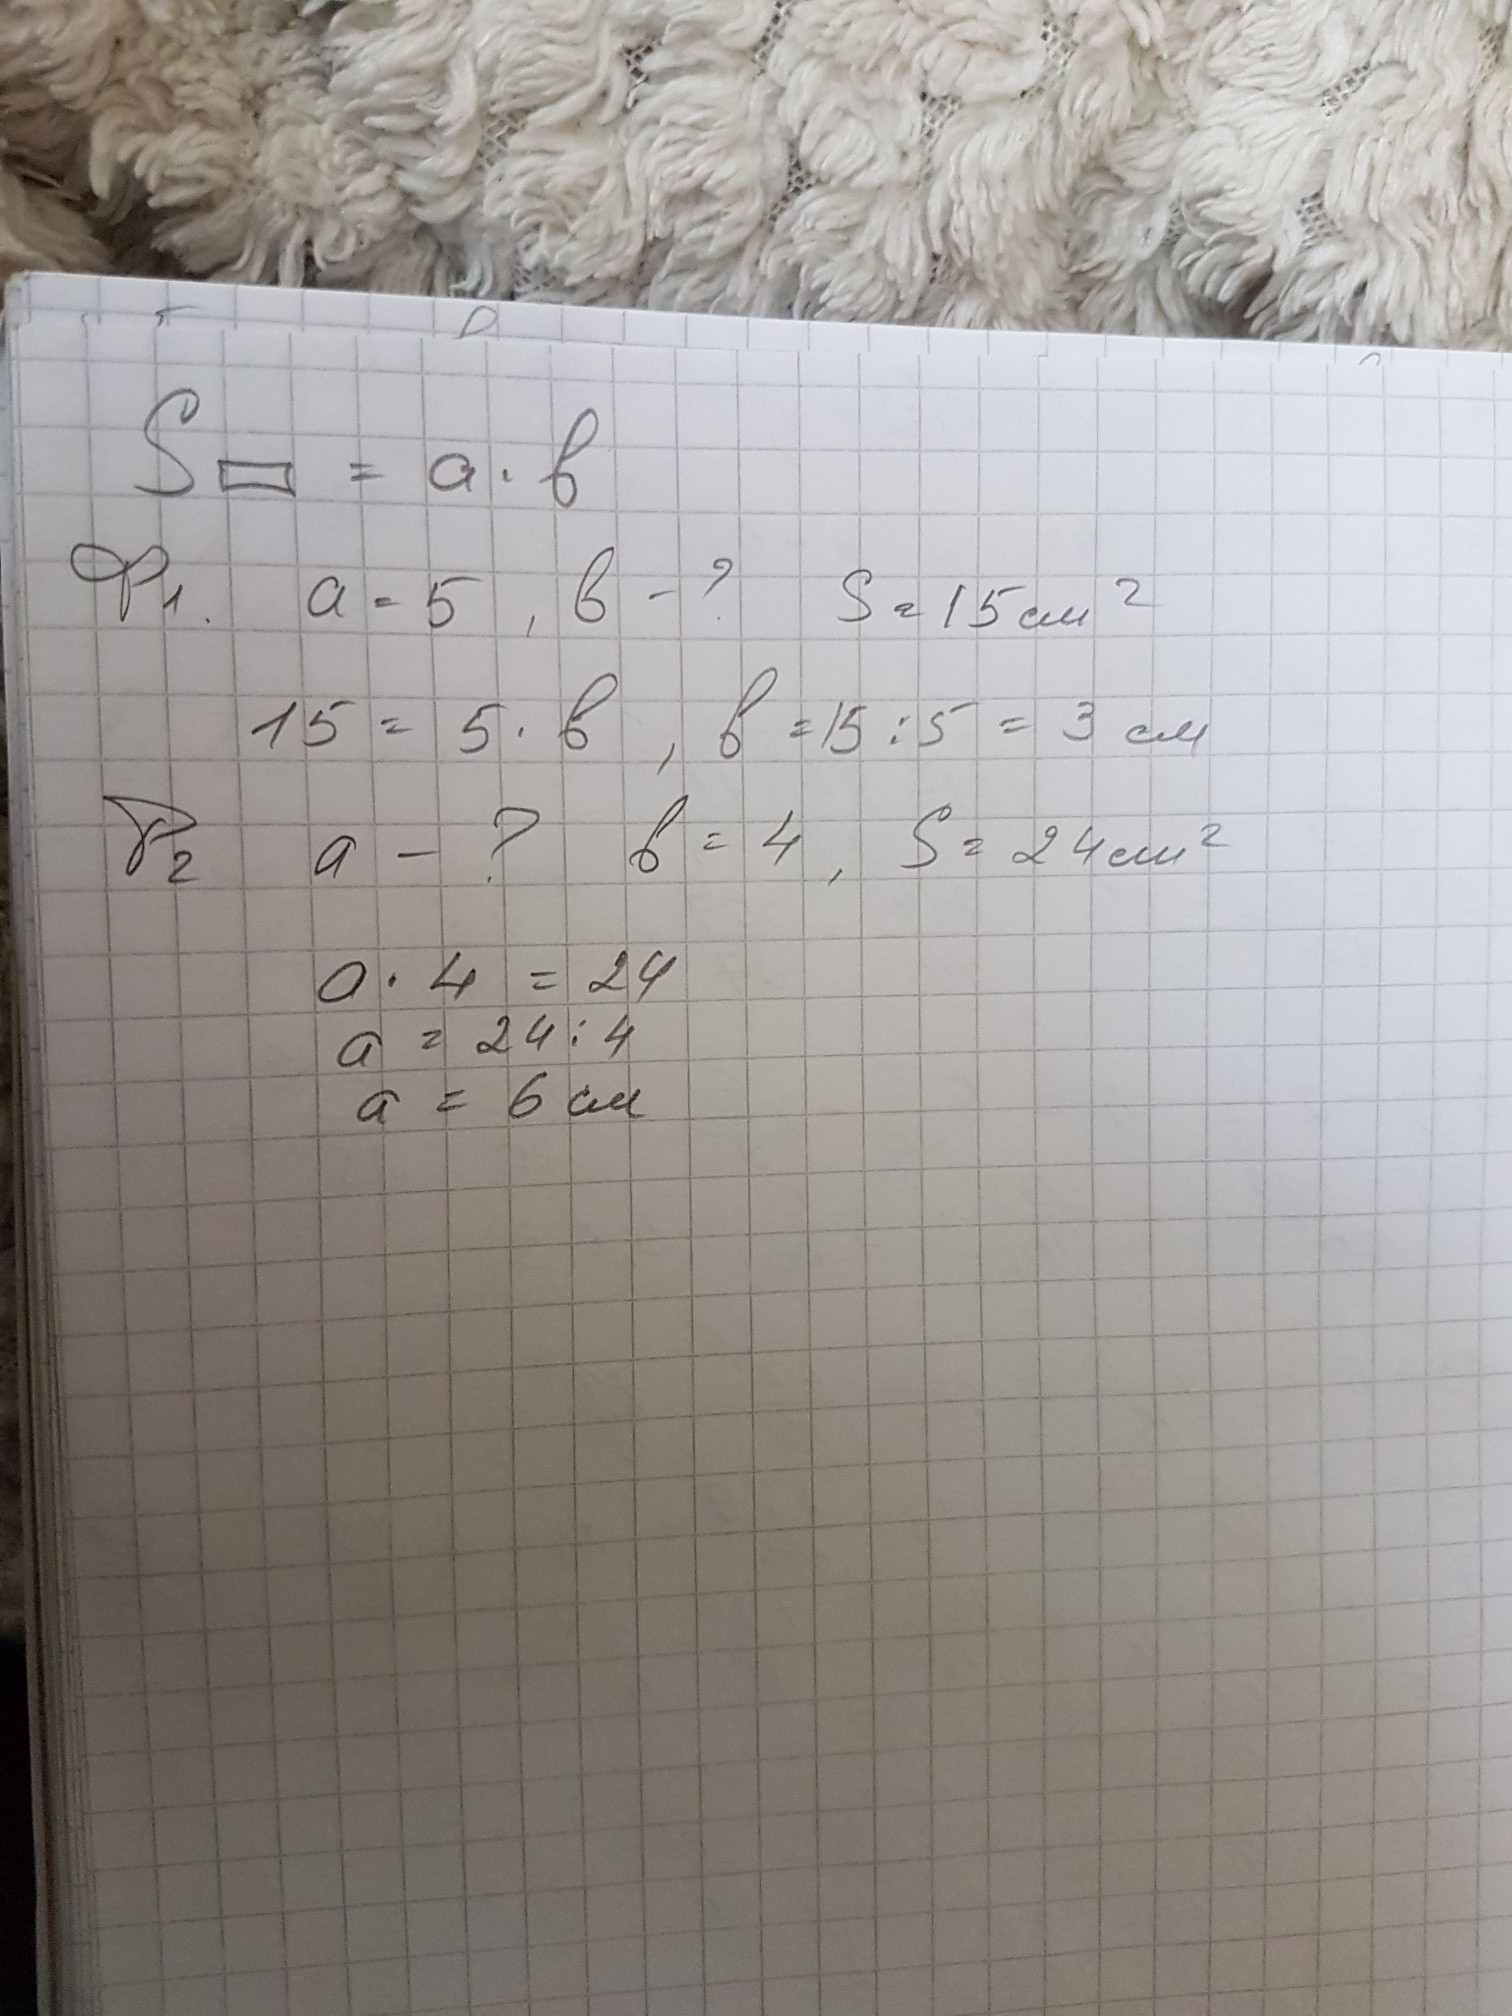 S▭ = a · в
Ф1. a = 5, в - ? S = 15 см²
15 = 5 · в, в = 15 : 5 = 3 см
a - ? в = 4, S = 24 см²
a · 4 = 24
a = 24 : 4
a = 6 см